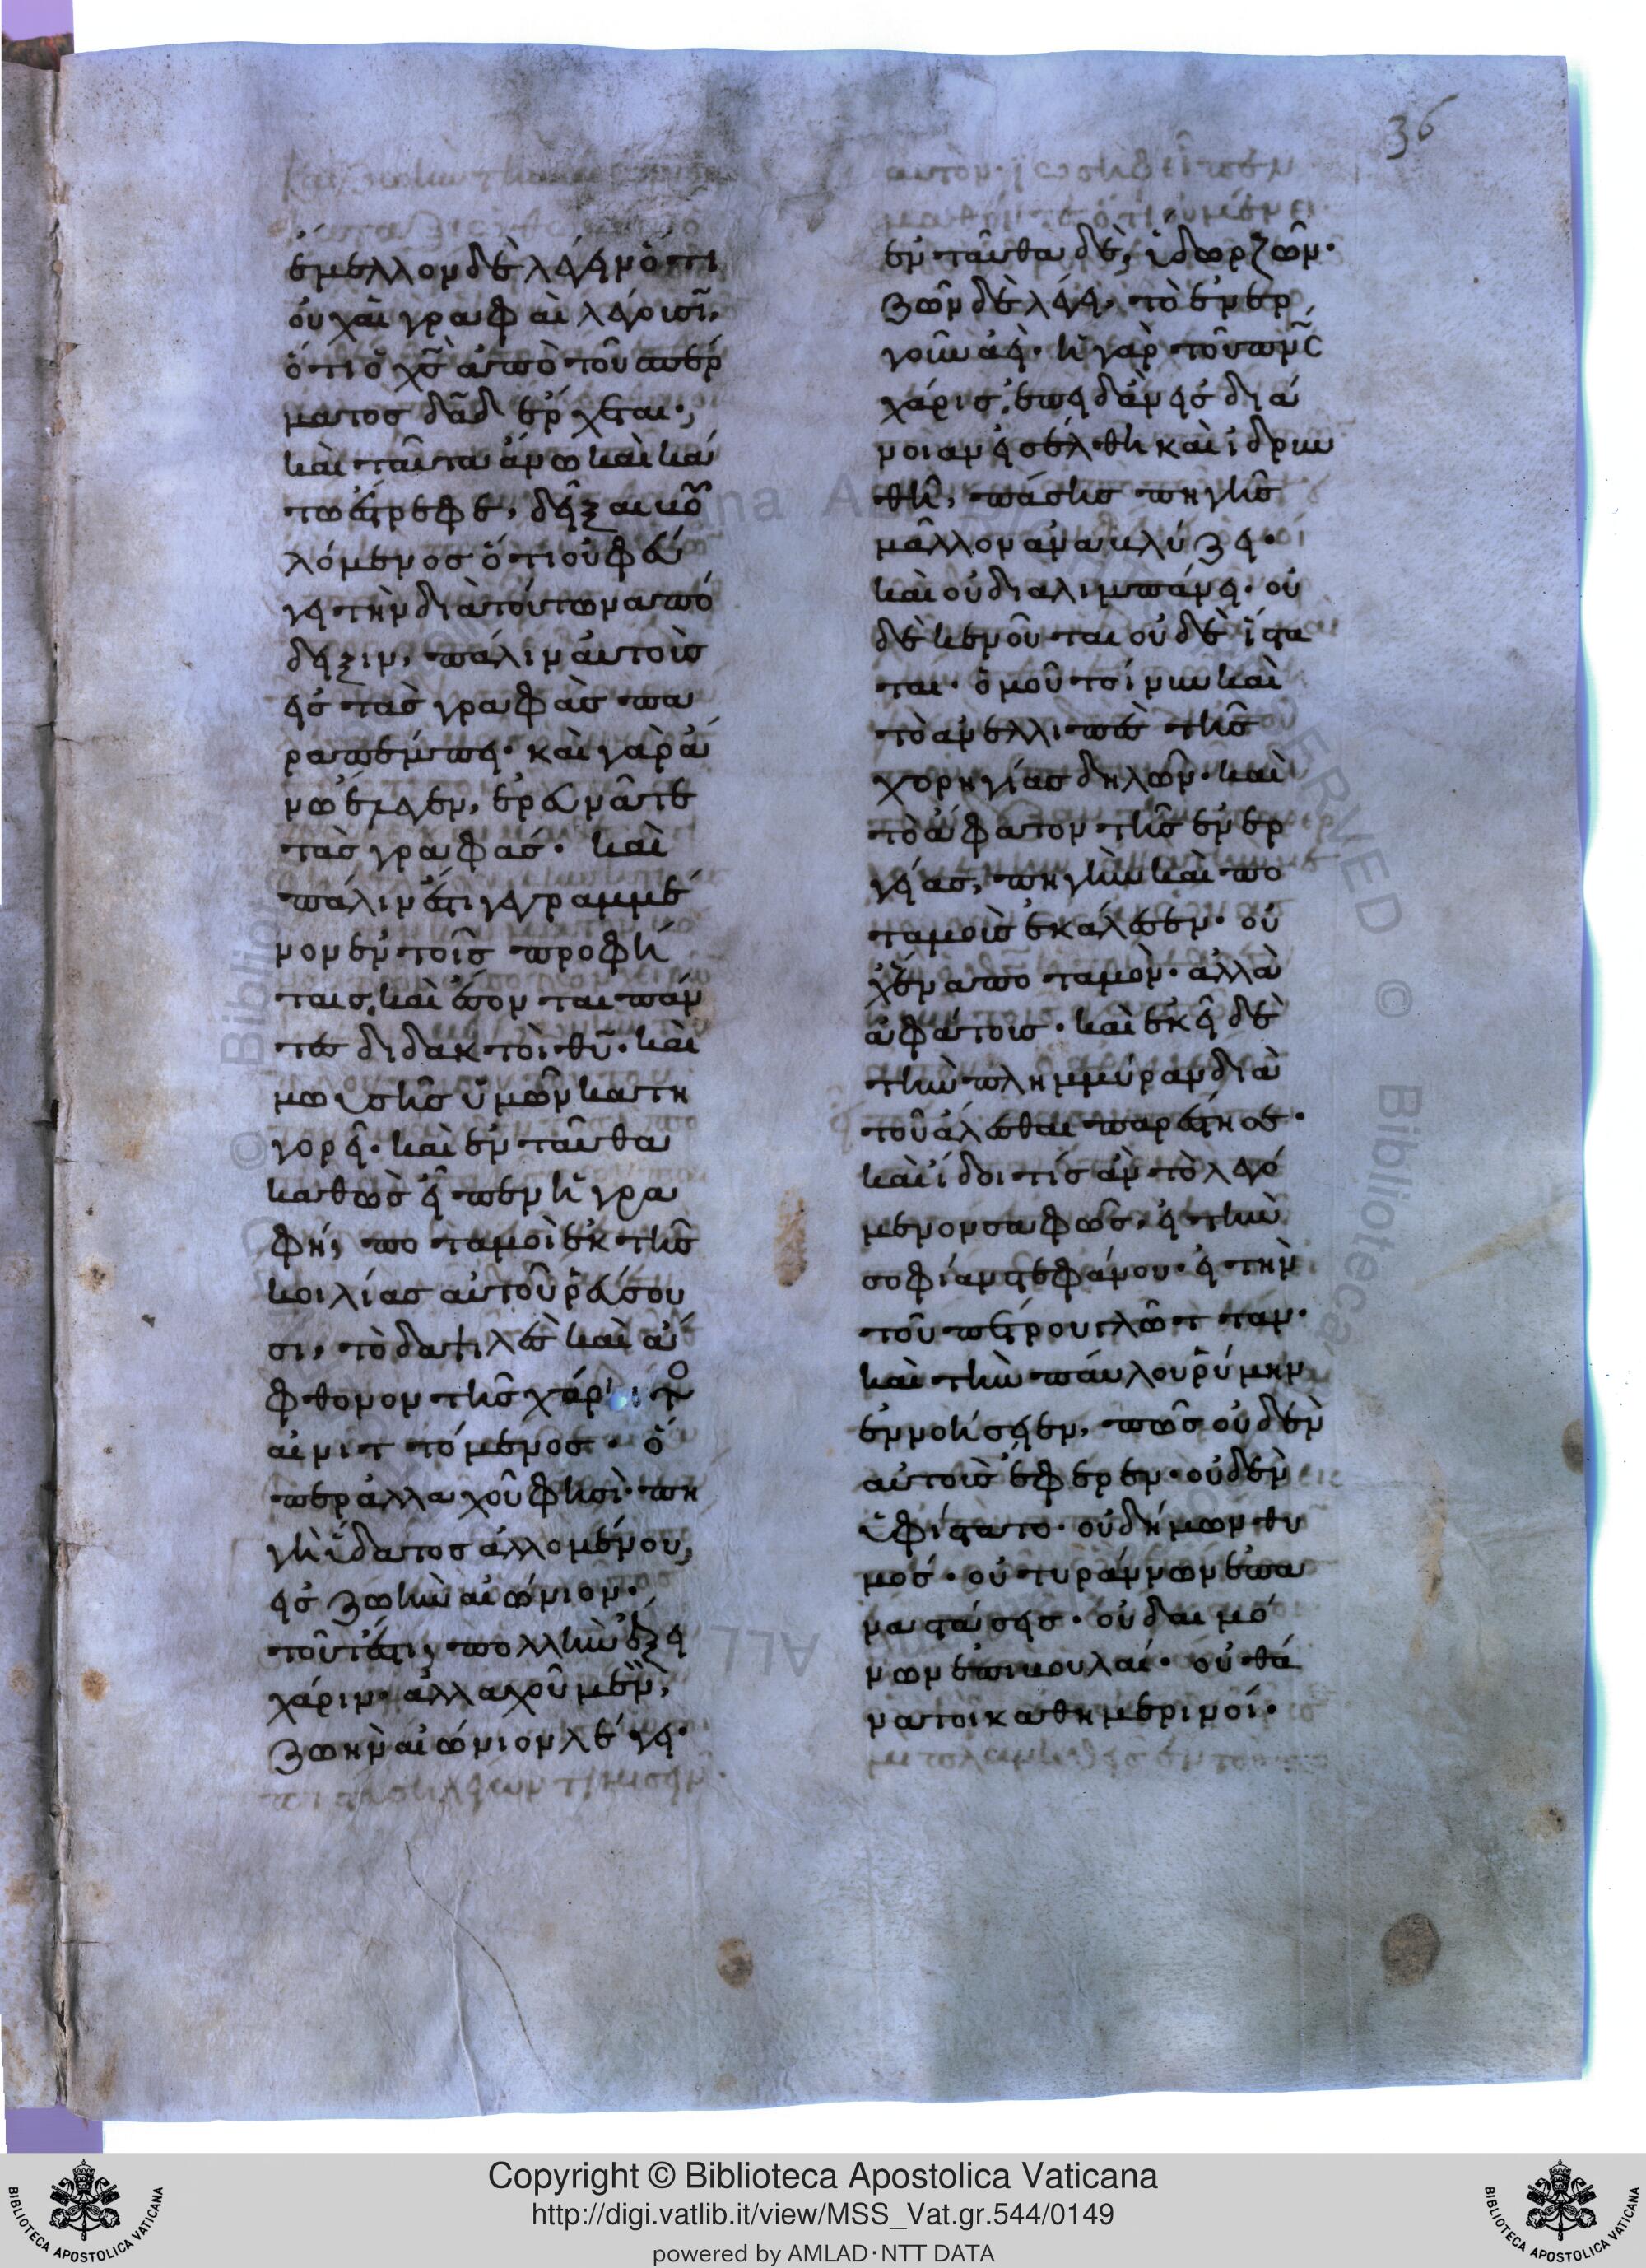 36
ἔμελλον δὲ λέγειν ὅτι
οὐχ αἱ γραφαὶ λέγουσῖ,
ὅτι ὁ χς ἀπὸ τοῦ σπέρ
ματος δᾱδ ἔρχεται,
καὶ ταῦτα ἄνω καὶ κά
τω ἔστρεφε, δεῖξαι
λόμενος ὅτι οὐ φεύ
γει τὴν διὰ τούτων ἀπό
δειξιν, πάλιν αὐτοὺς
εἰς τὰς γραφὰς πα
ραπέμπει· καὶ γὰρ ἄ
νω ἔλεγεν, ἐρευνᾶτε
τὰς γραφάς· καὶ
πάλιν ἔστι γεγραμμέ
νον ἐν τοῖς προφή
ταις, καὶ ἔσονται πάν
τες διδακτοὶ θῡ· καὶ
μωυσῆς ὑμῶν κατη
γορεῖ· καὶ ἐνταῦθα
καθὼς εἶπεν ἡ γρα
φή, ποταμοὶ ἐκ τῆς
κοιλίας αὐτοῦ ῥεύσου
σι, τὸ δαψιλὲς καὶ ἄ
φθονον τῆς χάρι
αἰνιττόμενος· ὅ
περ ἀλλαχοῦ φησὶ· πη
γὴ ὕδατος ἁλλομένου,
εἰς ζωὴν αἰώνιον·
τοῦτέστι, πολλὴν ἕξει
χάριν· ἀλλαχοῦ μὲν,
ζωὴν αἰώνιον λέγει·
ἐνταῦθα δὲ, ὕδωρ ζῶν·
ζῶν δὲ λέγει, τὸ ἐνερ
γοῦν ἀεὶ· ἡ γὰρ τοῦ πνς
χάρις, ἐπειδὰν εἰς διά
νοιαν εἰσέλθη καὶ ἱδρυν
θῆ, πάσης πηγῆς
μᾶλλον ἀναβλύζει·
καὶ οὐ διαλιμπάνει· οὐ
δὲ κενοῦται οὐδὲ ἵστα
ται· ὁμοῦ τοίνυν καὶ
τὸ ἀνελλιπὲς τῆς
χορηγίας δηλῶν· καὶ
τὸ ἄφατον τῆς ἐνερ
γείας, πηγὴν καὶ πο
ταμοὺς ἐκάλεσεν· οὐ
χ ἕνα ποταμὸν· ἀλλὰ
ἀφάτοις· καὶ ἐκεῖ δὲ
τὴν πλημμύραν διὰ
τοῦ ἅλεσθαι παρέστησε·
καὶ ἴδοι τίς ἂν τὸ λεγό
μενον σαφῶς, εἰ τὴν
σοφίαν στεφάνου· εἰ τὴν
τοῦ πέτρου γλῶτταν·
καὶ τὴν παύλου ῥύμην
ἐννοήσειεν, πῶς οὐδὲν
αὐτοὺς ἔφερεν· οὐδὲν
ὑφίστατο· οὐ δήμων θυ
μός· οὐ τυράννων ἐπα
ναστάσεις· οὐ δαιμό
νων ἐπιβουλαί· οὐ θά
νατοι καθημερινοί·
Copyright © Biblioteca Apostolica Vaticana
http://digi.vatlib.it/view/MSS_Vat.gr.544/0149
powered by AMLAD·NTT DATA